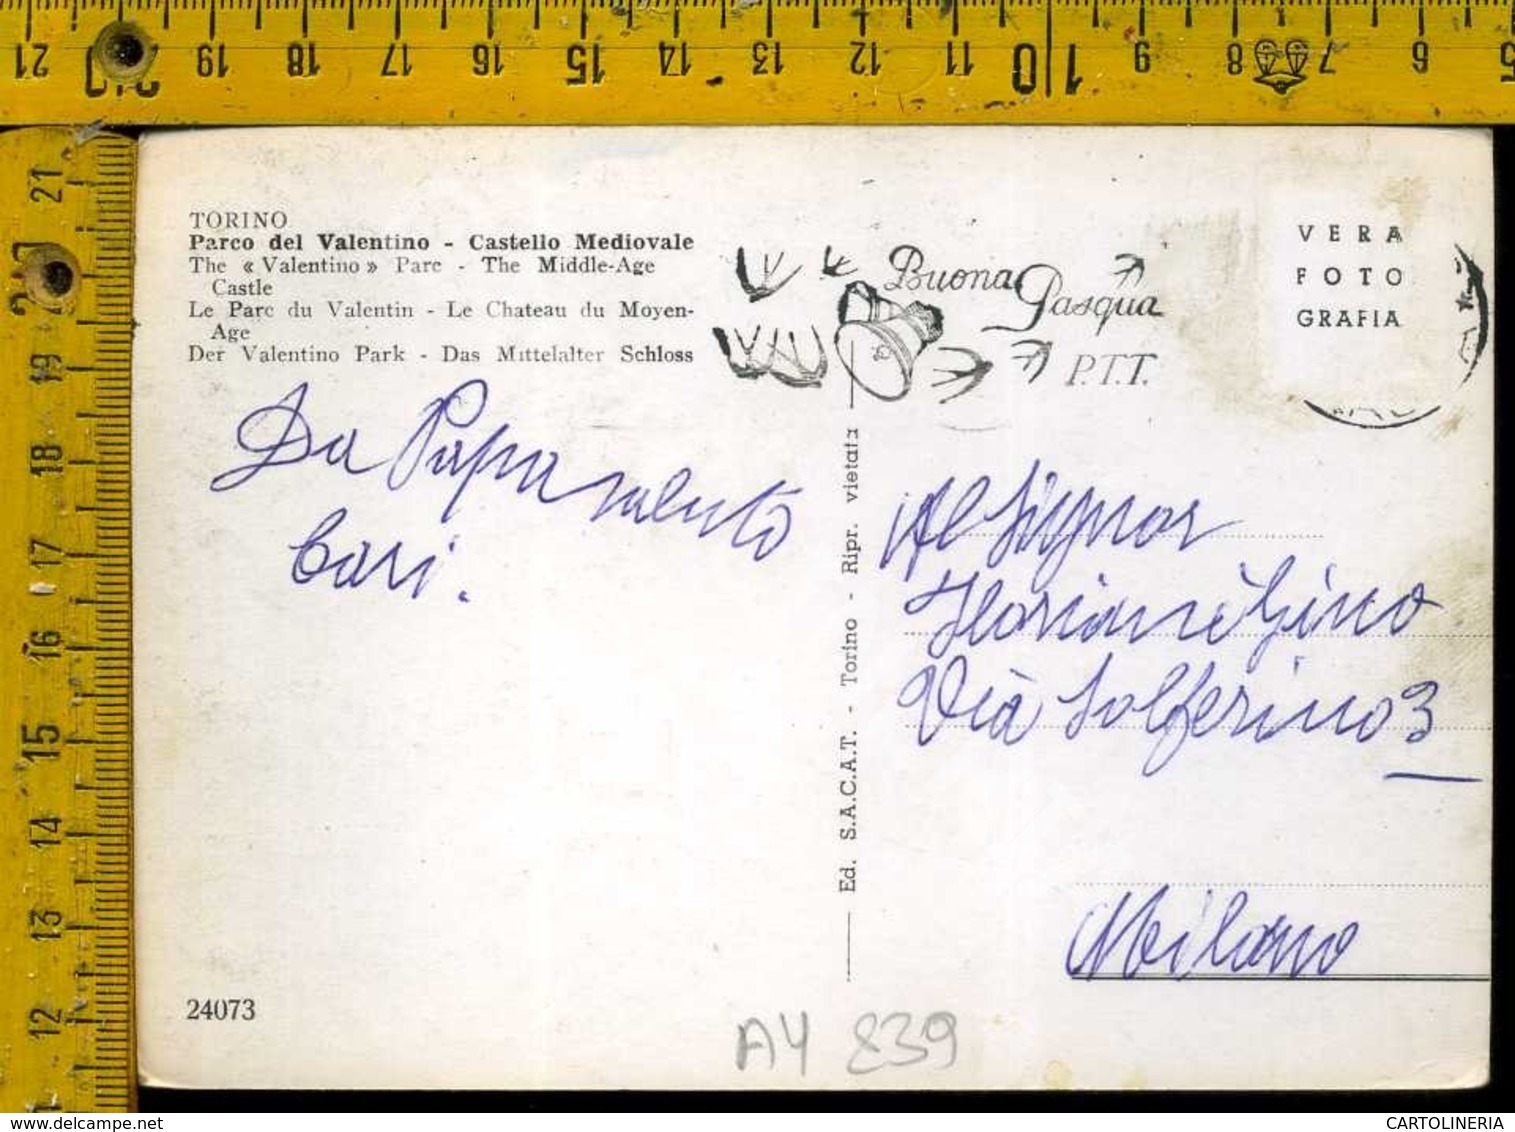 21 20 19 18 17 16 15 14 13 12 11 10 9 8 7 6 5
TORINO
Parco del Valentino - Castello Mediovale
The « Valentino » Parc - The Middle-Age
Castle
Le Parc du Valentin - Le Chateau du Moyen-
Age
Der Valentino Park - Das Mittelalter Schloss
Buona Pasqua
P.T.T.
VERA
FOTO
GRAFIA
Da Papa
Cari.
Ed. S.A.C.A.T. - Torino - Ripr. vietata
Al Signor
Floriani Gino
Via Solferino 3
Milano
24073
AY 839
21
20
19
18
17
16
15
14
13
12
www.delcampe.net
CARTOLINERIA